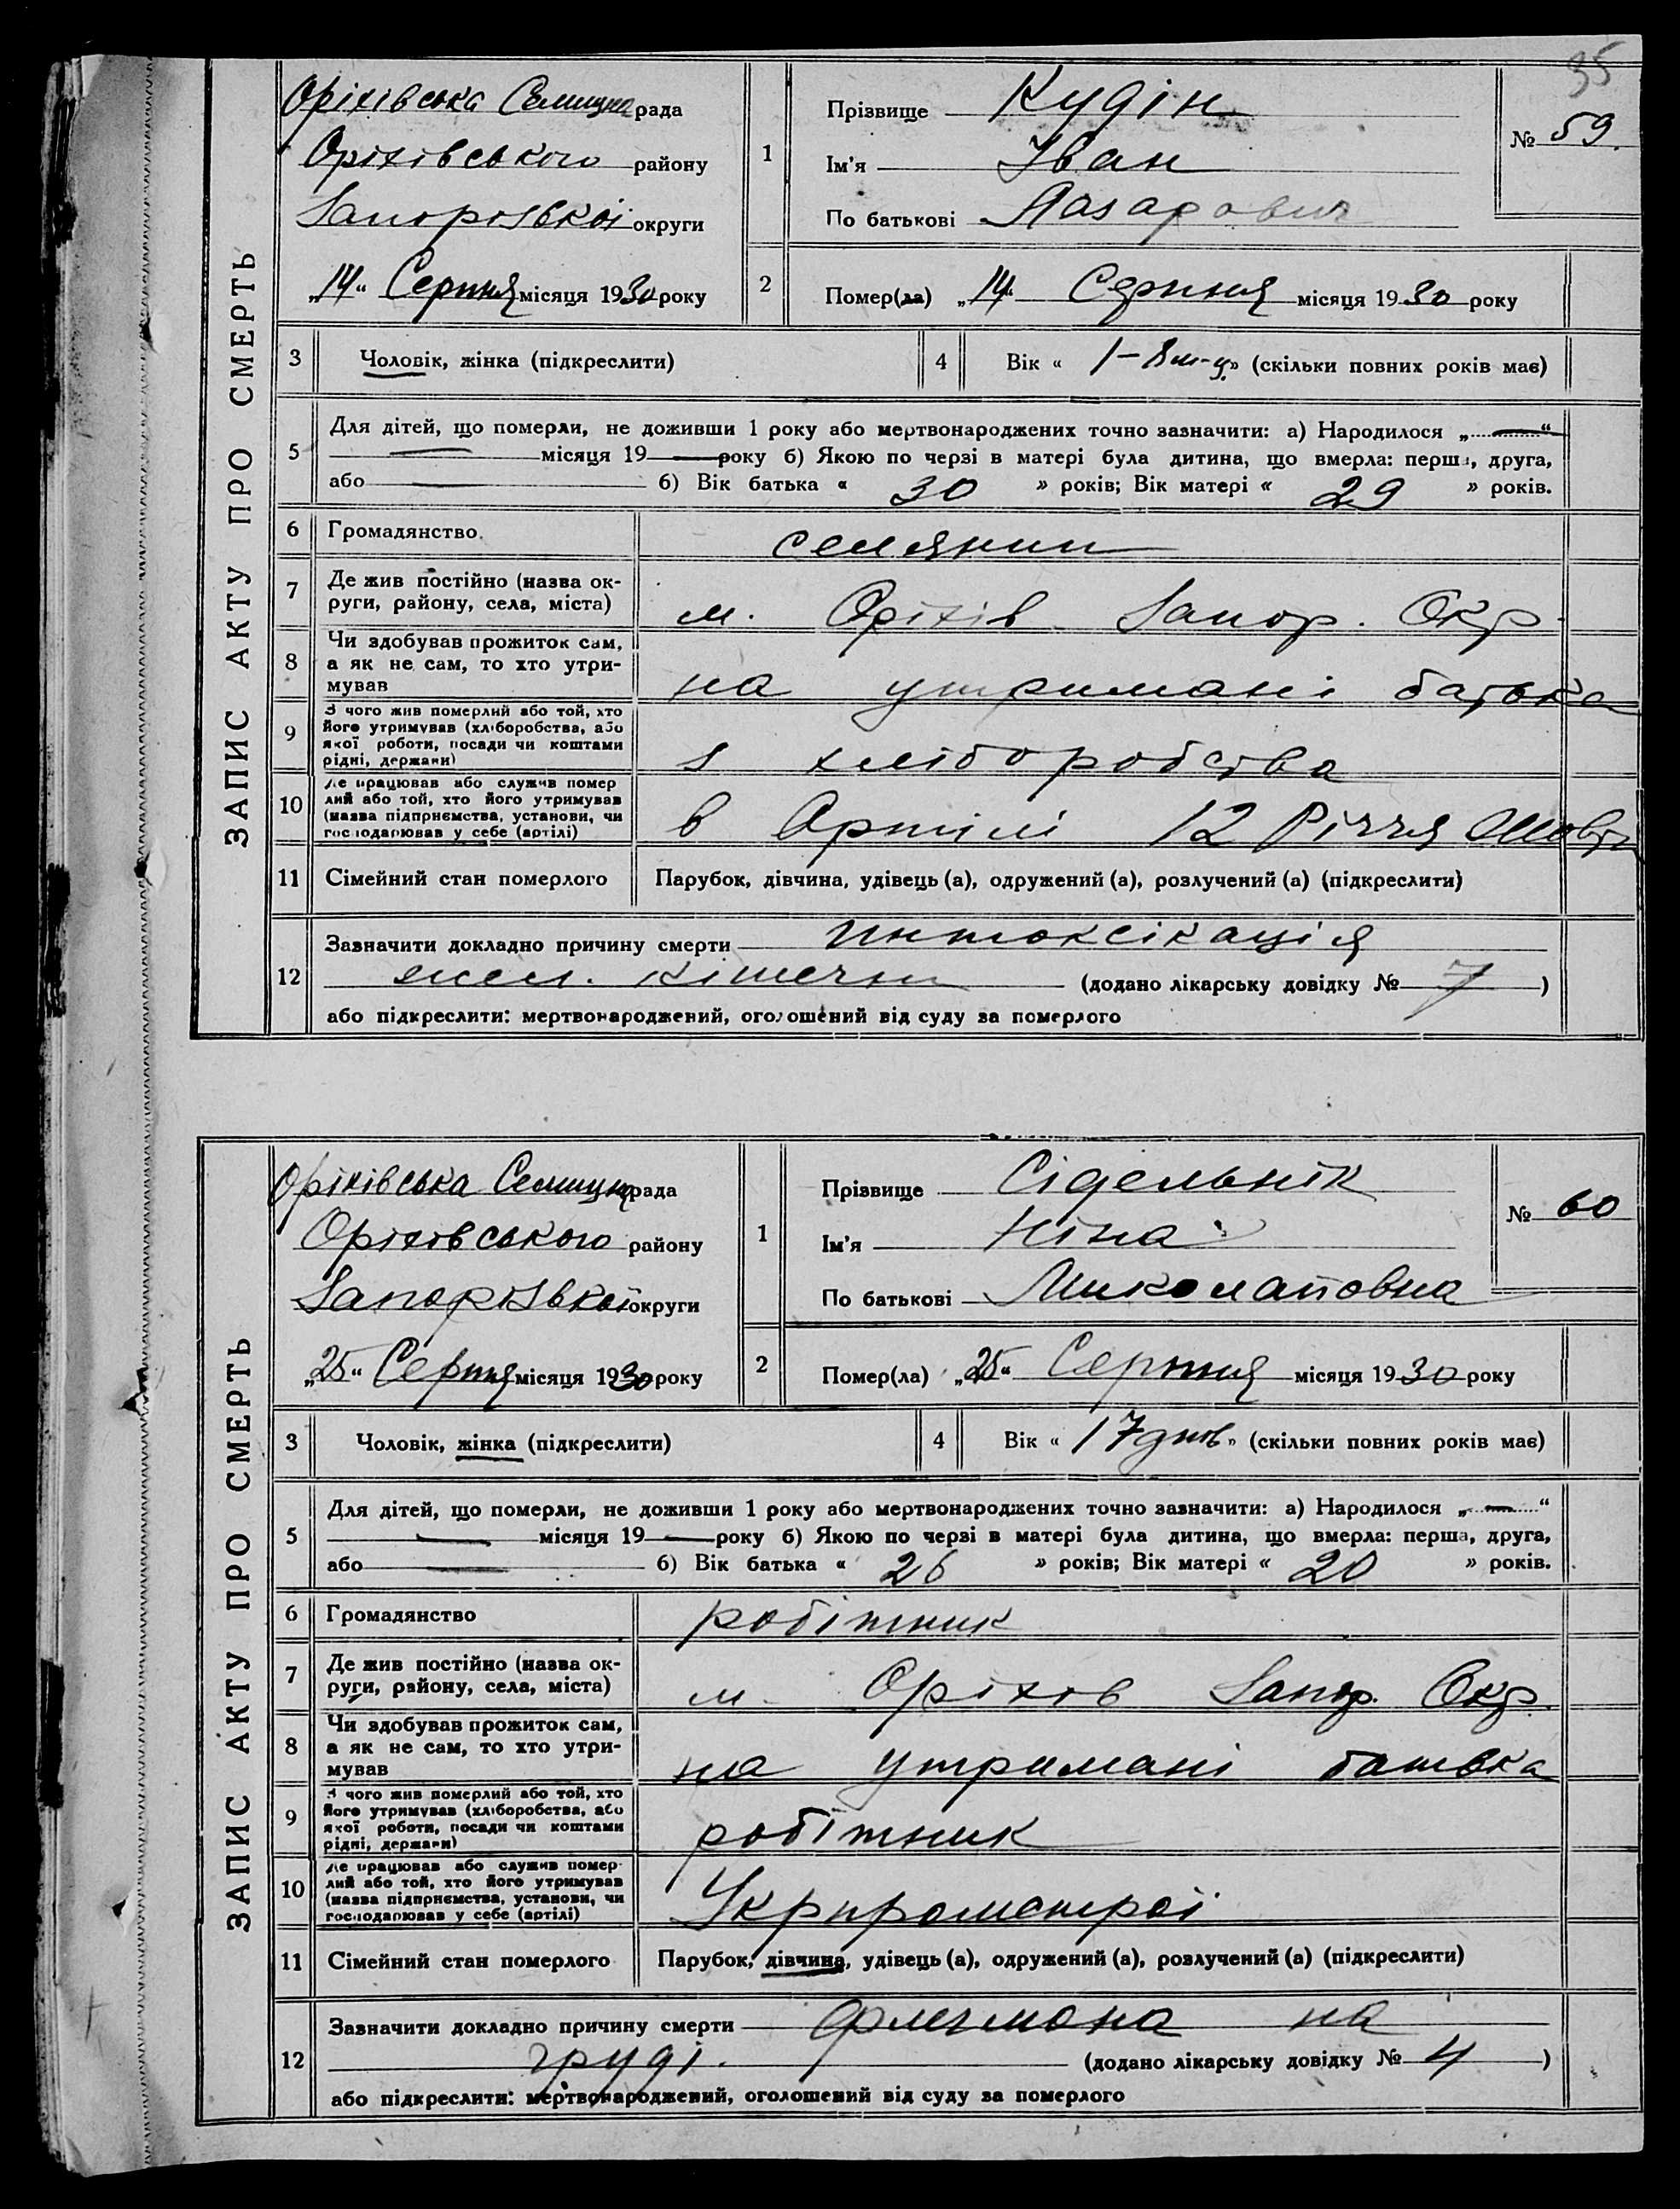 35
ЗАПИС АКТУ ПРО СМЕРТЬ
Оріхівська Селищна рада
Оріхівського району
Запорозької округи
„14“ Серпня місяця 1930 року
1
Прізвище Кудін
Ім'я Іван
По батькові Лазарович
№ 59.
2
Помер(ла) „14“ Серпня місяця 1930 року
3 Чоловік, жінка (підкреслити)
4 Вік « 1-8 м-ц » (скільки повних років має)
5 Для дітей, що померли, не доживши 1 року або мертвонароджених точно зазначити: а) Народилося „—“
— місяця 19— року б) Якою по черзі в матері була дитина, що вмерла: перша, друга,
або — б) Вік батька « 30 » років; Вік матері « 29 » років.
6 Громадянство селянин
7 Де жив постійно (назва ок-
руги, району, села, міста)
м. Оріхів Запор. Окр.
8 Чи здобував прожиток сам,
а як не сам, то хто утри-
мував
на утримані батька
9 З чого жив померлий або той, хто
його утримував (хліборобства, або
якої роботи, посади чи коштами
рідні, держави)
з хліборобства
10 Де працював або служив помер
лий або той, хто його утримував
(назва підприємства, установи, чи
господарював у себе (артілі)
в Артілі 12 Річчя
11 Сімейний стан померлого Парубок, дівчина, удівець (а), одружений (а), розлучений (а) (підкреслити)
12 Зазначити докладно причину смерти интоксікація
жел. кішечн (додано лікарську довідку № 7 )
або підкреслити: мертвонароджений, оголошений від суду за померлого
ЗАПИС АКТУ ПРО СМЕРТЬ
Оріхівська Селищна рада
Оріхівського району
Запорозької округи
„25“ Серпня місяця 1930 року
1
Прізвище Сідельнік
Ім'я Ніна
По батькові Миколаповна
№ 60
2
Помер(ла) „25“ Серпня місяця 1930 року
3 Чоловік, жінка (підкреслити)
4 Вік « 17 днів » (скільки повних років має)
5 Для дітей, що померли, не доживши 1 року або мертвонароджених точно зазначити: а) Народилося „—“
— місяця 19— року б) Якою по черзі в матері була дитина, що вмерла: перша, друга,
або — б) Вік батька « 26 » років; Вік матері « 20 » років.
6 Громадянство робітник
7 Де жив постійно (назва ок-
руги, району, села, міста)
м. Оріхів Запор. Окр.
8 Чи здобував прожиток сам,
а як не сам, то хто утри-
мував
на утримані батька
9 З чого жив померлий або той, хто
його утримував (хліборобства, або
якої роботи, посади чи коштами
рідні, держави)
робітник
10 Де працював або служив помер-
лий або той, хто його утримував
(назва підприємства, установи, чи
господарював у себе (артілі)
Укрпромстрої
11 Сімейний стан померлого Парубок, дівчина, удівець (а), одружений (а), розлучений (а) (підкреслити)
12 Зазначити докладно причину смерти флегмона на
груді. (додано лікарську довідку № 4 )
або підкреслити: мертвонароджений, оголошений від суду за померлого